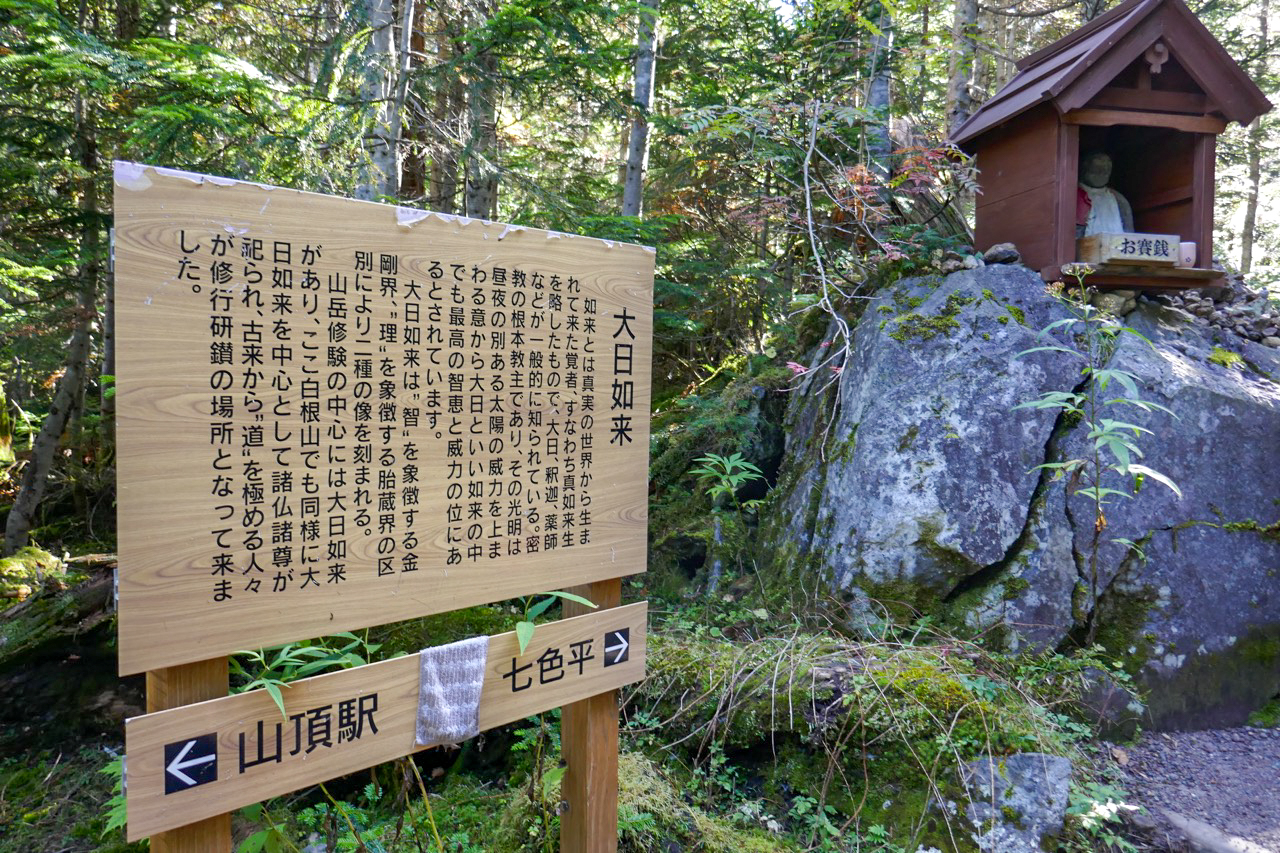 大日如来
如来とは真実の世界から生ま
れて来た覚者、すなわち真如来生
を略したもので、大日、釈迦、薬師
などが一般的に知られている。密
教の根本教主であり、その光明は
昼夜の別ある太陽の威力を上ま
わる意から大日といい如来の中
でも最高の智恵と威力の位にあ
るとされています。
大日如来は〝智〟を象徴する金
剛界、〝理〟を象徴する胎蔵界の区
別により二種の像を刻まれる。
山岳修験の中心には大日如来
があり、ここ白根山でも同様に大
日如来を中心として諸仏諸尊が
祀られ、古来から〝道〟を極める人々
が修行研鑽の場所となって来ま
した。
← 山頂駅
七色平 →
お賽銭